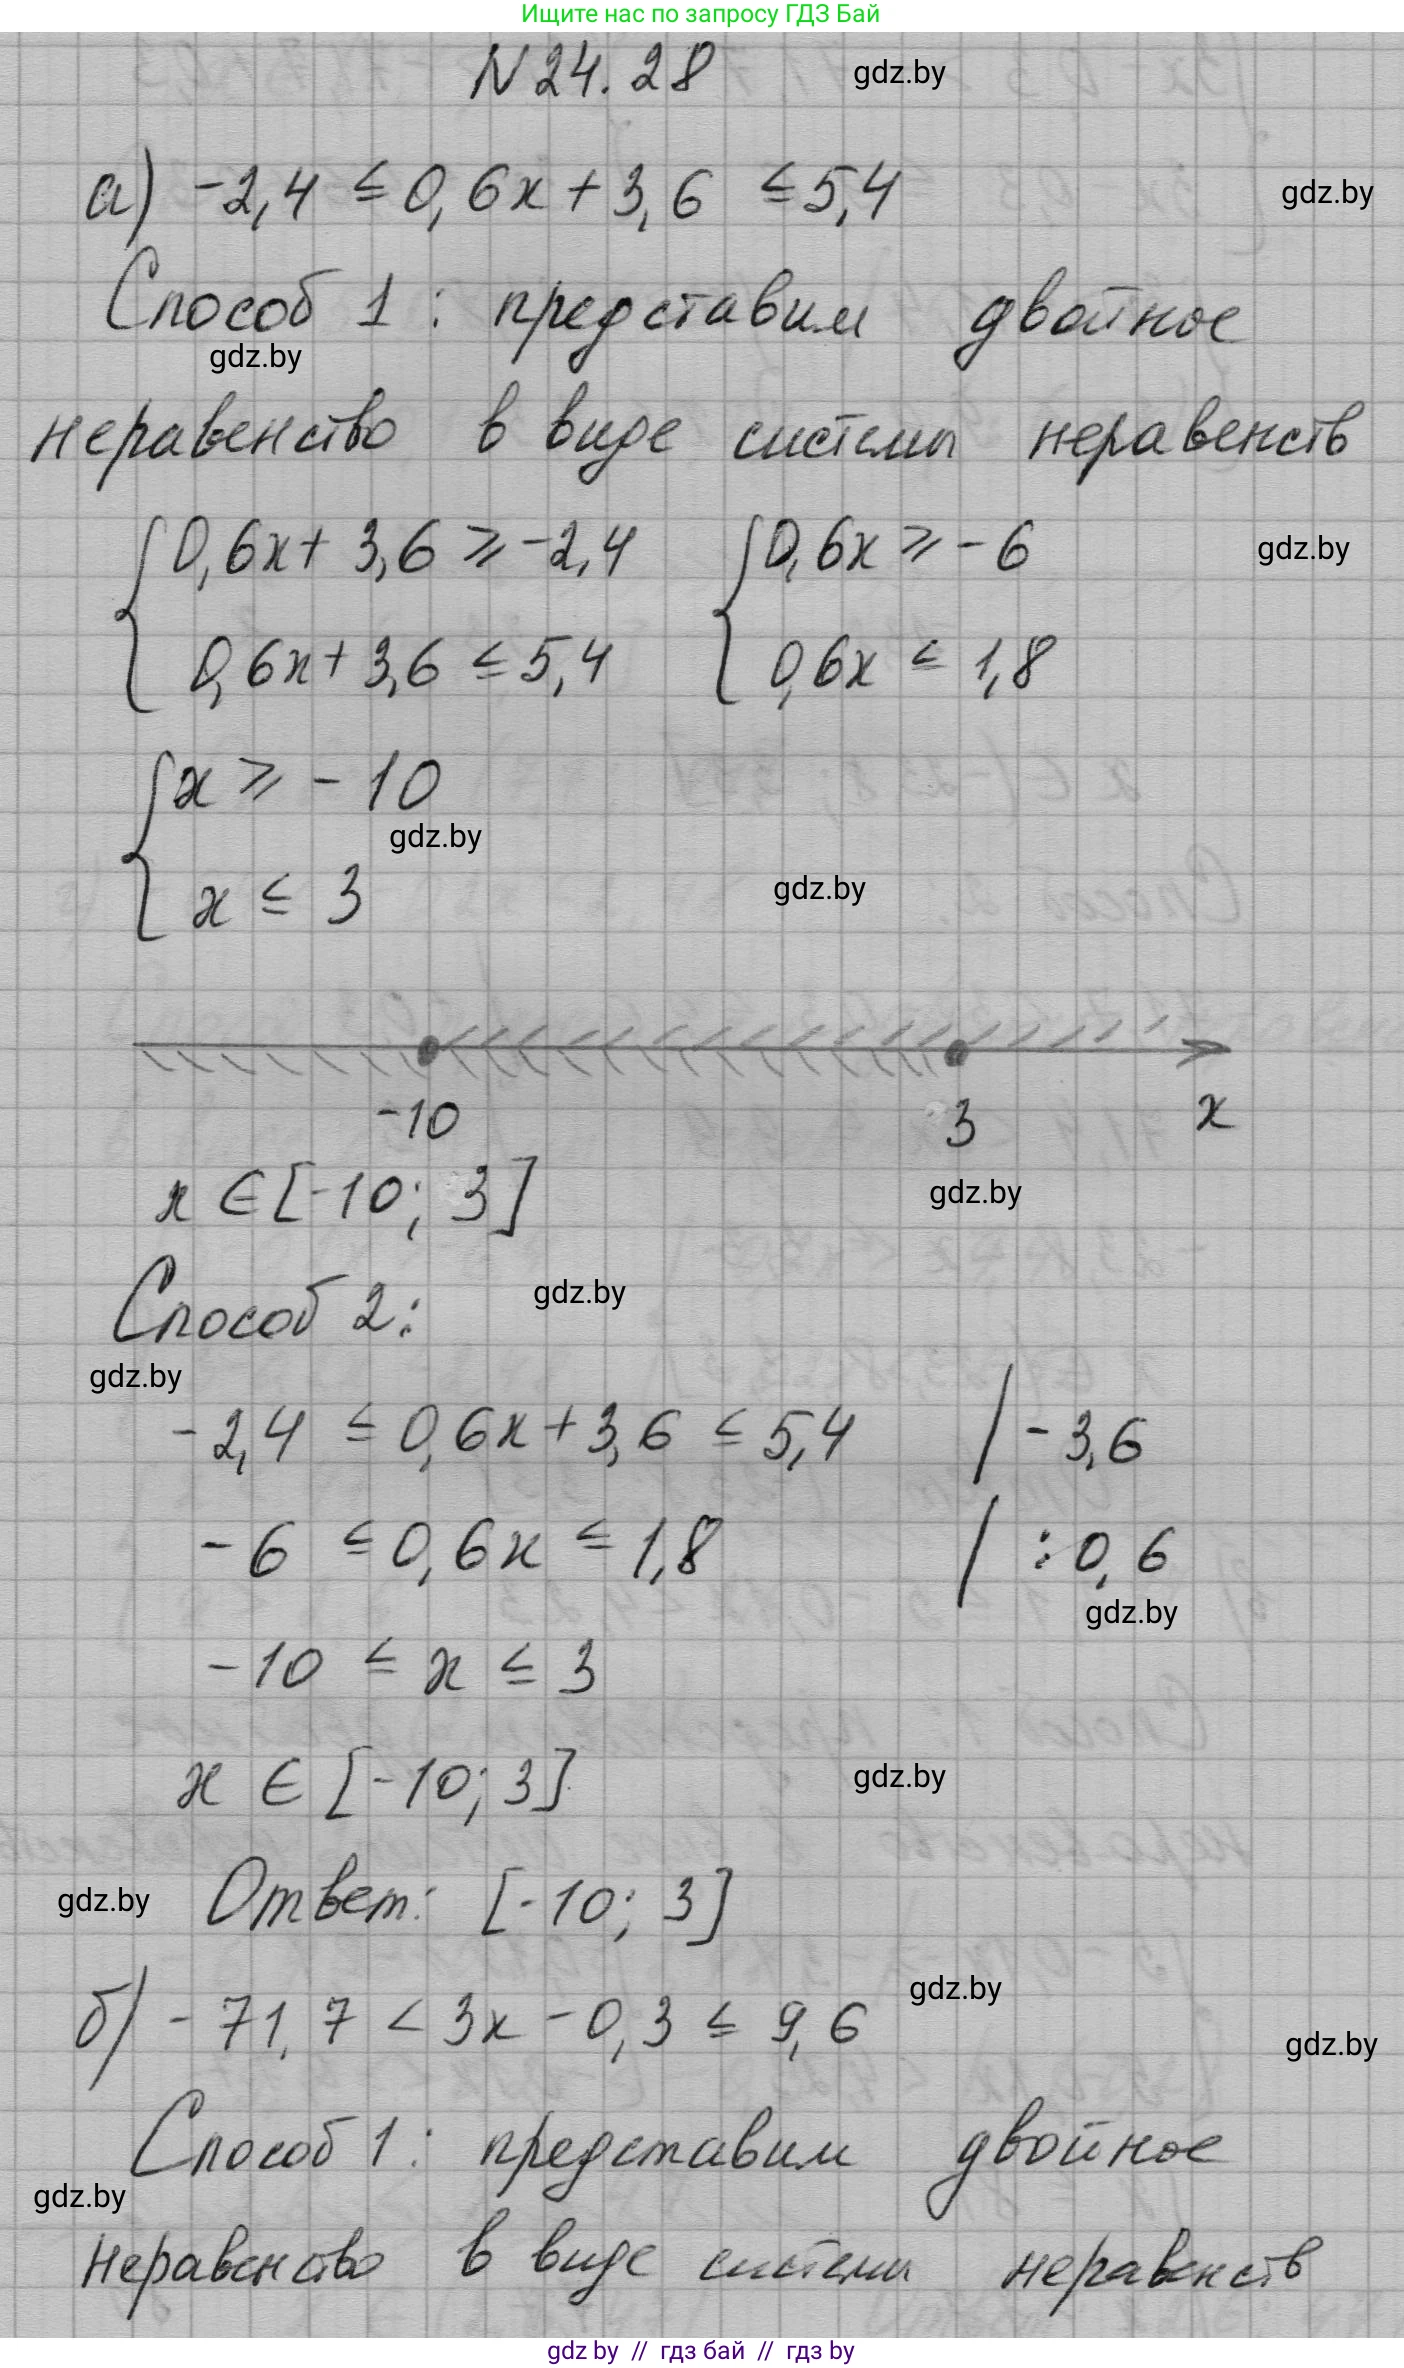 Ищите нас по запросу ГДЗ Бай
N 24.28
gdz.by
а) -2,4 ≤ 0,6x + 3,6 ≤ 5,4
gdz.by
Способ 1: представим двойное
gdz.by
неравенство в виде системы неравенств
{0,6x + 3,6 ≥ -2,4 {0,6x ≥ -6
gdz.by
0,6x + 3,6 ≤ 5,4 0,6x ≤ 1,8
{x ≥ -10
gdz.by
x ≤ 3
gdz.by
-10 3 x
x ∈ [-10; 3]
gdz.by
Способ 2:
gdz.by
gdz.by
-2,4 ≤ 0,6x + 3,6 ≤ 5,4 | -3,6
-6 ≤ 0,6x ≤ 1,8 | :0,6
gdz.by
-10 ≤ x ≤ 3
x ∈ [-10; 3]
gdz.by
Ответ: [-10; 3]
gdz.by
gdz.by
б) -71,7 < 3x - 0,3 ≤ 9,6
gdz.by
Способ 1: представим двойное
gdz.by
неравенство в виде системы неравенств
gdz by // гдз бай // гдз by